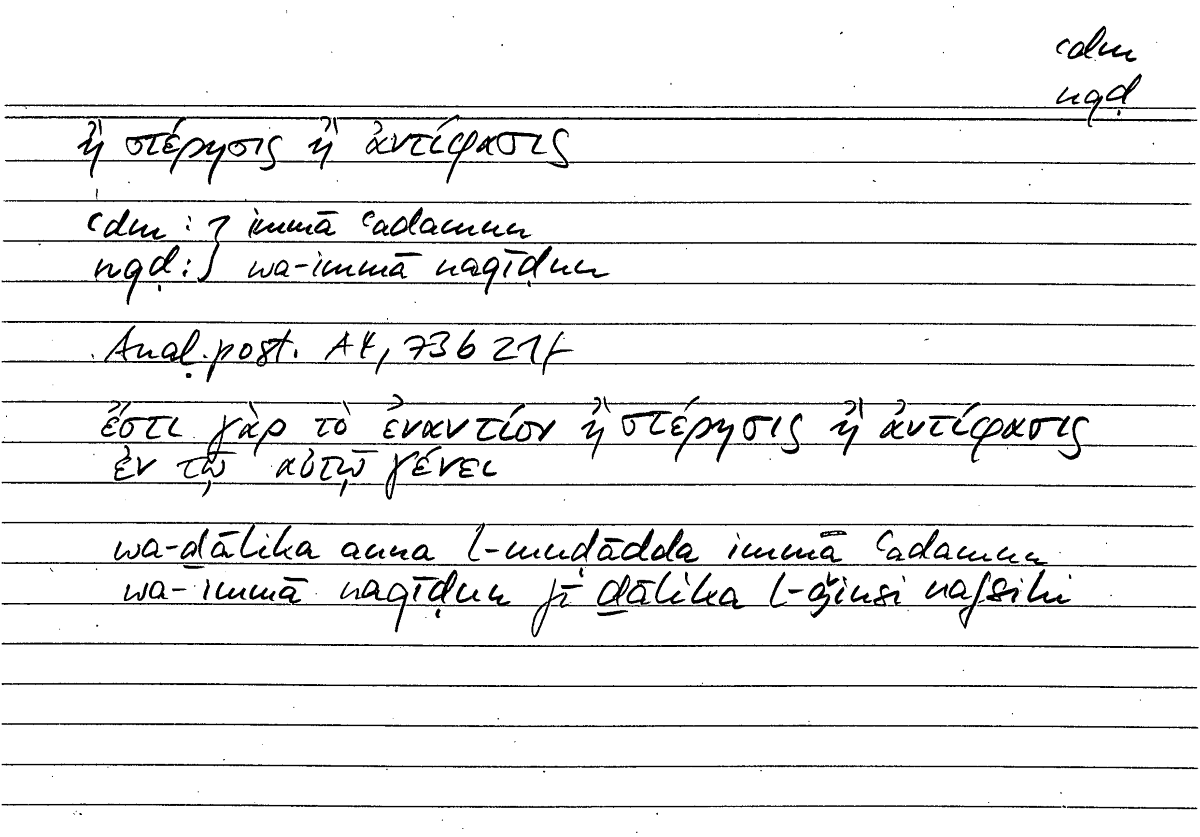 ʿdm
nqḍ
ἢ στέρησις ἢ ἀντίφασις
ʿdm : } immā ʿadamun
nqḍ : } wa-immā naqīḍun
Anal. post. A4, 73b21f
ἔστι γὰρ τὸ ἐναντίον ἢ στέρησις ἢ ἀντίφασις
ἐν τῷ αὐτῷ γένει
wa-ḏālika anna l-muḍādda immā ʿadamun
wa-immā naqīḍun fī ḏālika l-ǧinsi nafsihi